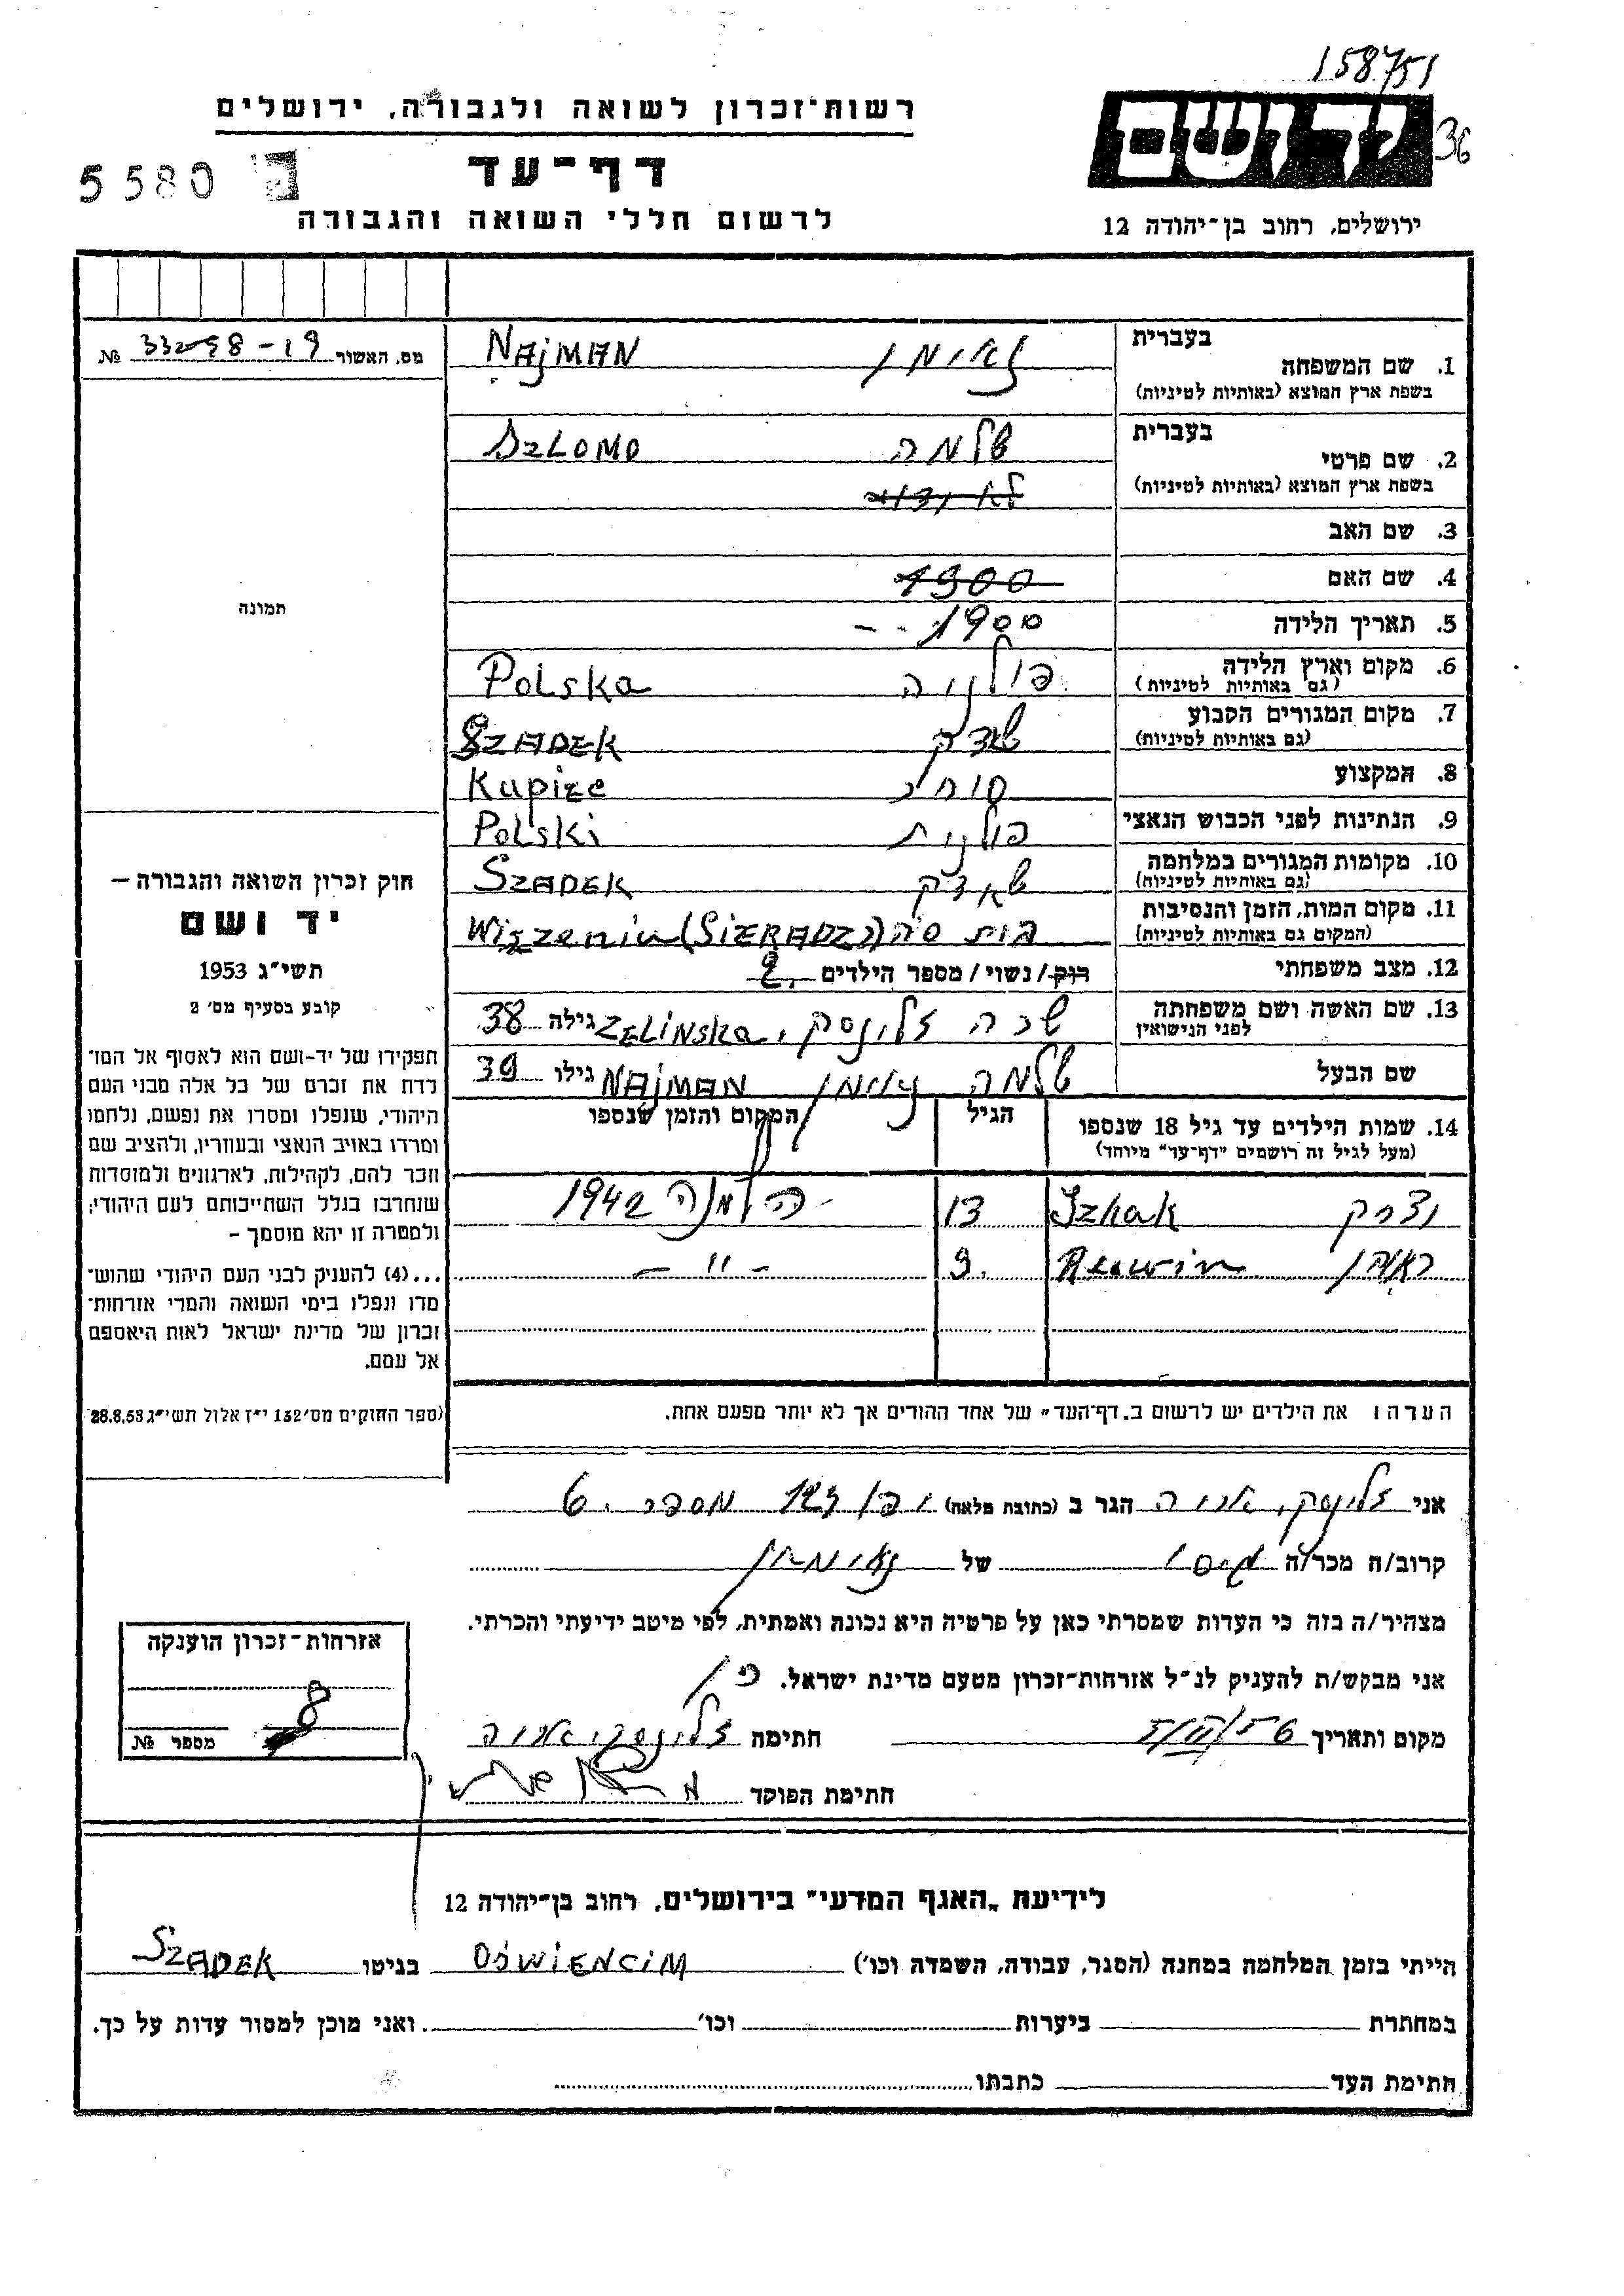 158751
רשות־זכרון לשואה ולגבורה, ירושלים
יד ושם
36
דף־עד
5580
לרשום חללי השואה והגבורה
ירושלים, רחוב בן־יהודה 12
מס. האשור 33298-19 №
בעברית
1. שם המשפחה נאימן NAjMAN
בשפת ארץ המוצא (באותיות לטיניות)
בעברית
2. שם פרטי שלמה SZLOMO
בשפת ארץ המוצא (באותיות לטיניות)
3. שם האב
4. שם האם 1900
5. תאריך הלידה 1900
6. מקום וארץ הלידה פולניה Polska
(גם באותיות לטיניות)
7. מקום המגורים הקבוע שאדק SZADEK
(גם באותיות לטיניות)
8. המקצוע סוחר Kupiec
9. הנתינות לפני הכבוש הנאצי פולנית Polski
10. מקומות המגורים במלחמה שאדק SZADEK
(גם באותיות לטיניות)
11. מקום המות, הזמן והנסיבות (SIERADZ)
(המקום גם באותיות לטיניות)
12. מצב משפחתי רוק/נשוי/מספר הילדים 2.
13. שם האשה ושם משפחתה שרה זלינסקי ZELINSKA גילה 38
לפני הנישואין
שם הבעל שלמה נאימן NAJMAN גילו 39
14. שמות הילדים עד גיל 18 שנספו הגיל המקום והזמן שנספו
(מעל לגיל זה רושמים "דף־עד" מיוחד)
Iszhak 13 1942
ראובן Reuwin 9. - " -
תמונה
חוק זכרון השואה והגבורה –
יד ושם
תשי"ג 1953
קובע בסעיף מס' 2
תפקידו של יד־ושם הוא לאסוף אל המו־
לדת את זכרם של כל אלה מבני העם
היהודי, שנפלו ומסרו את נפשם, נלחמו
ומרדו באויב הנאצי ובעוזריו, ולהציב שם
וזכר להם, לקהילות, לארגונים ולמוסדות
שנחרבו בגלל השתייכותם לעם היהודי;
ולמטרה זו יהא מוסמך –
...(4) להעניק לבני העם היהודי שהוש־
מדו ונפלו בימי השואה והמרי אזרחות־
זכרון של מדינת ישראל לאות היאספם
אל עמם.
(ספר החוקים מס' 132 י"ז אלול תשי"ג 28.8.53
הערה: את הילדים יש לרשום ב„דף־העד" של אחד ההורים אך לא יותר מפעם אחת.
אני זלינסקי אריה הגר ב (כתובת מלאה) מספר 6
קרוב/ה מכר/ה גיסו של נאימן
מצהיר/ה בזה כי העדות שמסרתי כאן על פרטיה היא נכונה ואמתית, לפי מיטב ידיעתי והכרתי.
אני מבקש/ת להעניק לנ"ל אזרחות־זכרון מטעם מדינת ישראל. כן
מקום ותאריך חתימה זלינסקי אריה
חתימת הפוקד
אזרחות־זכרון הוענקה
8
מספר №
לידיעת „האגף המדעי" בירושלים, רחוב בן־יהודה 12
הייתי בזמן המלחמה במחנה (הסגר, עבודה, השמדה וכו') OŚWIENCIM בגיטו SZADEK
במחתרת ביערות וכו' ואני מוכן למסור עדות על כך.
חתימת העד כתבתו